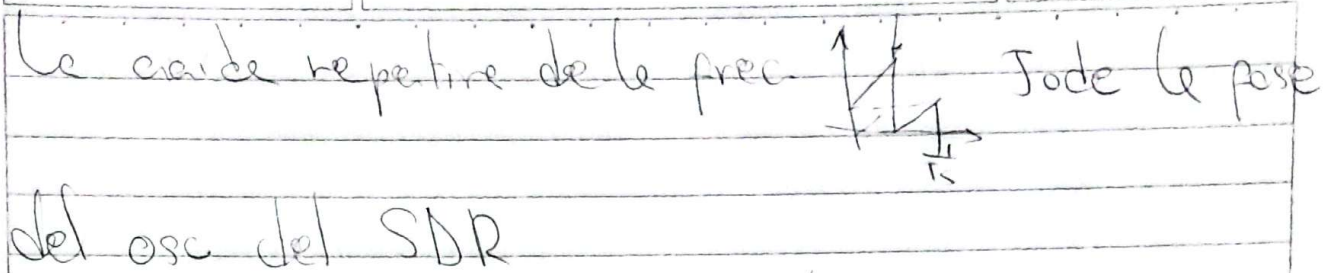 La caida repentina de la frec Jode la fase
del osc del SDR